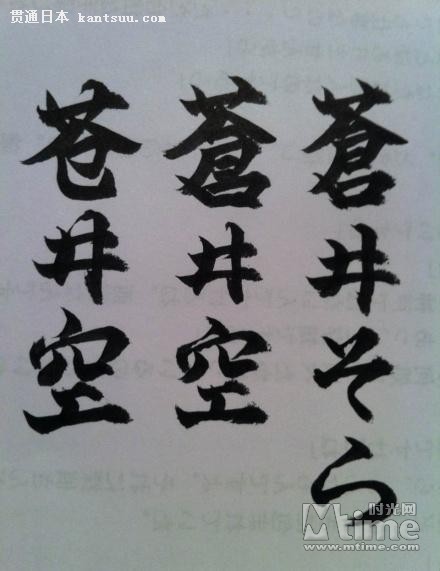 贯通日本 kantsuu.com
蒼井そら
蒼井空
苍井空
时光网
Mtime
www.mtime.com